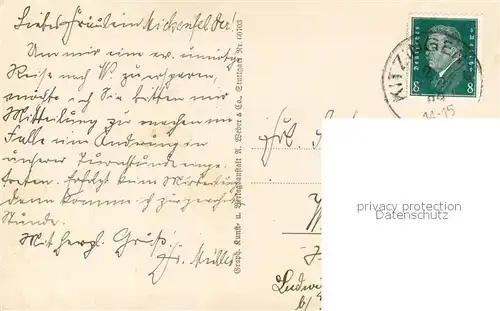 Liebes Fräulein Mickenfelder!
Um mir eine ev. unnötige
Reise nach W. zu ersparen,
möchte ich Sie bitten mir
Mitteilung zu machen im
Falle eine Änderung in
unserer Turnstunde einge-
treten. Erfolgt keine Mitteilung
dann komme ich zur
Stunde.
Mit herzl. Gruß!
Müller
Graph. Kunst- u. Verlagsanstalt A. Weber & Co., Stuttgart Nr. 60703
Deutsches Reich
8 8
KITZINGEN
14-15
Frl.
Ludwi
b/
privacy protection
Datenschutz